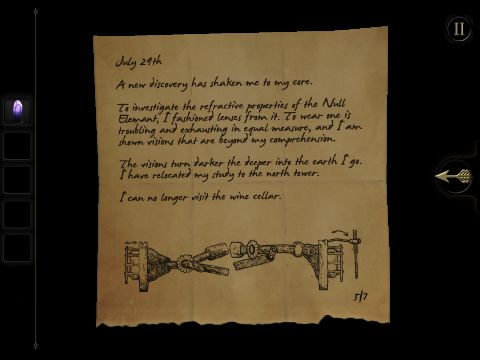 July 29th
A new discovery has shaken me to my core.
To investigate the refractive properties of the Null
Element, I fashioned lenses from it. To wear one is
troubling and exhausting in equal measure, and I am
shown visions that are beyond my comprehension.
The visions turn darker the deeper into the earth I go.
I have relocated my study to the north tower.
I can no longer visit the wine cellar.
5/7
II